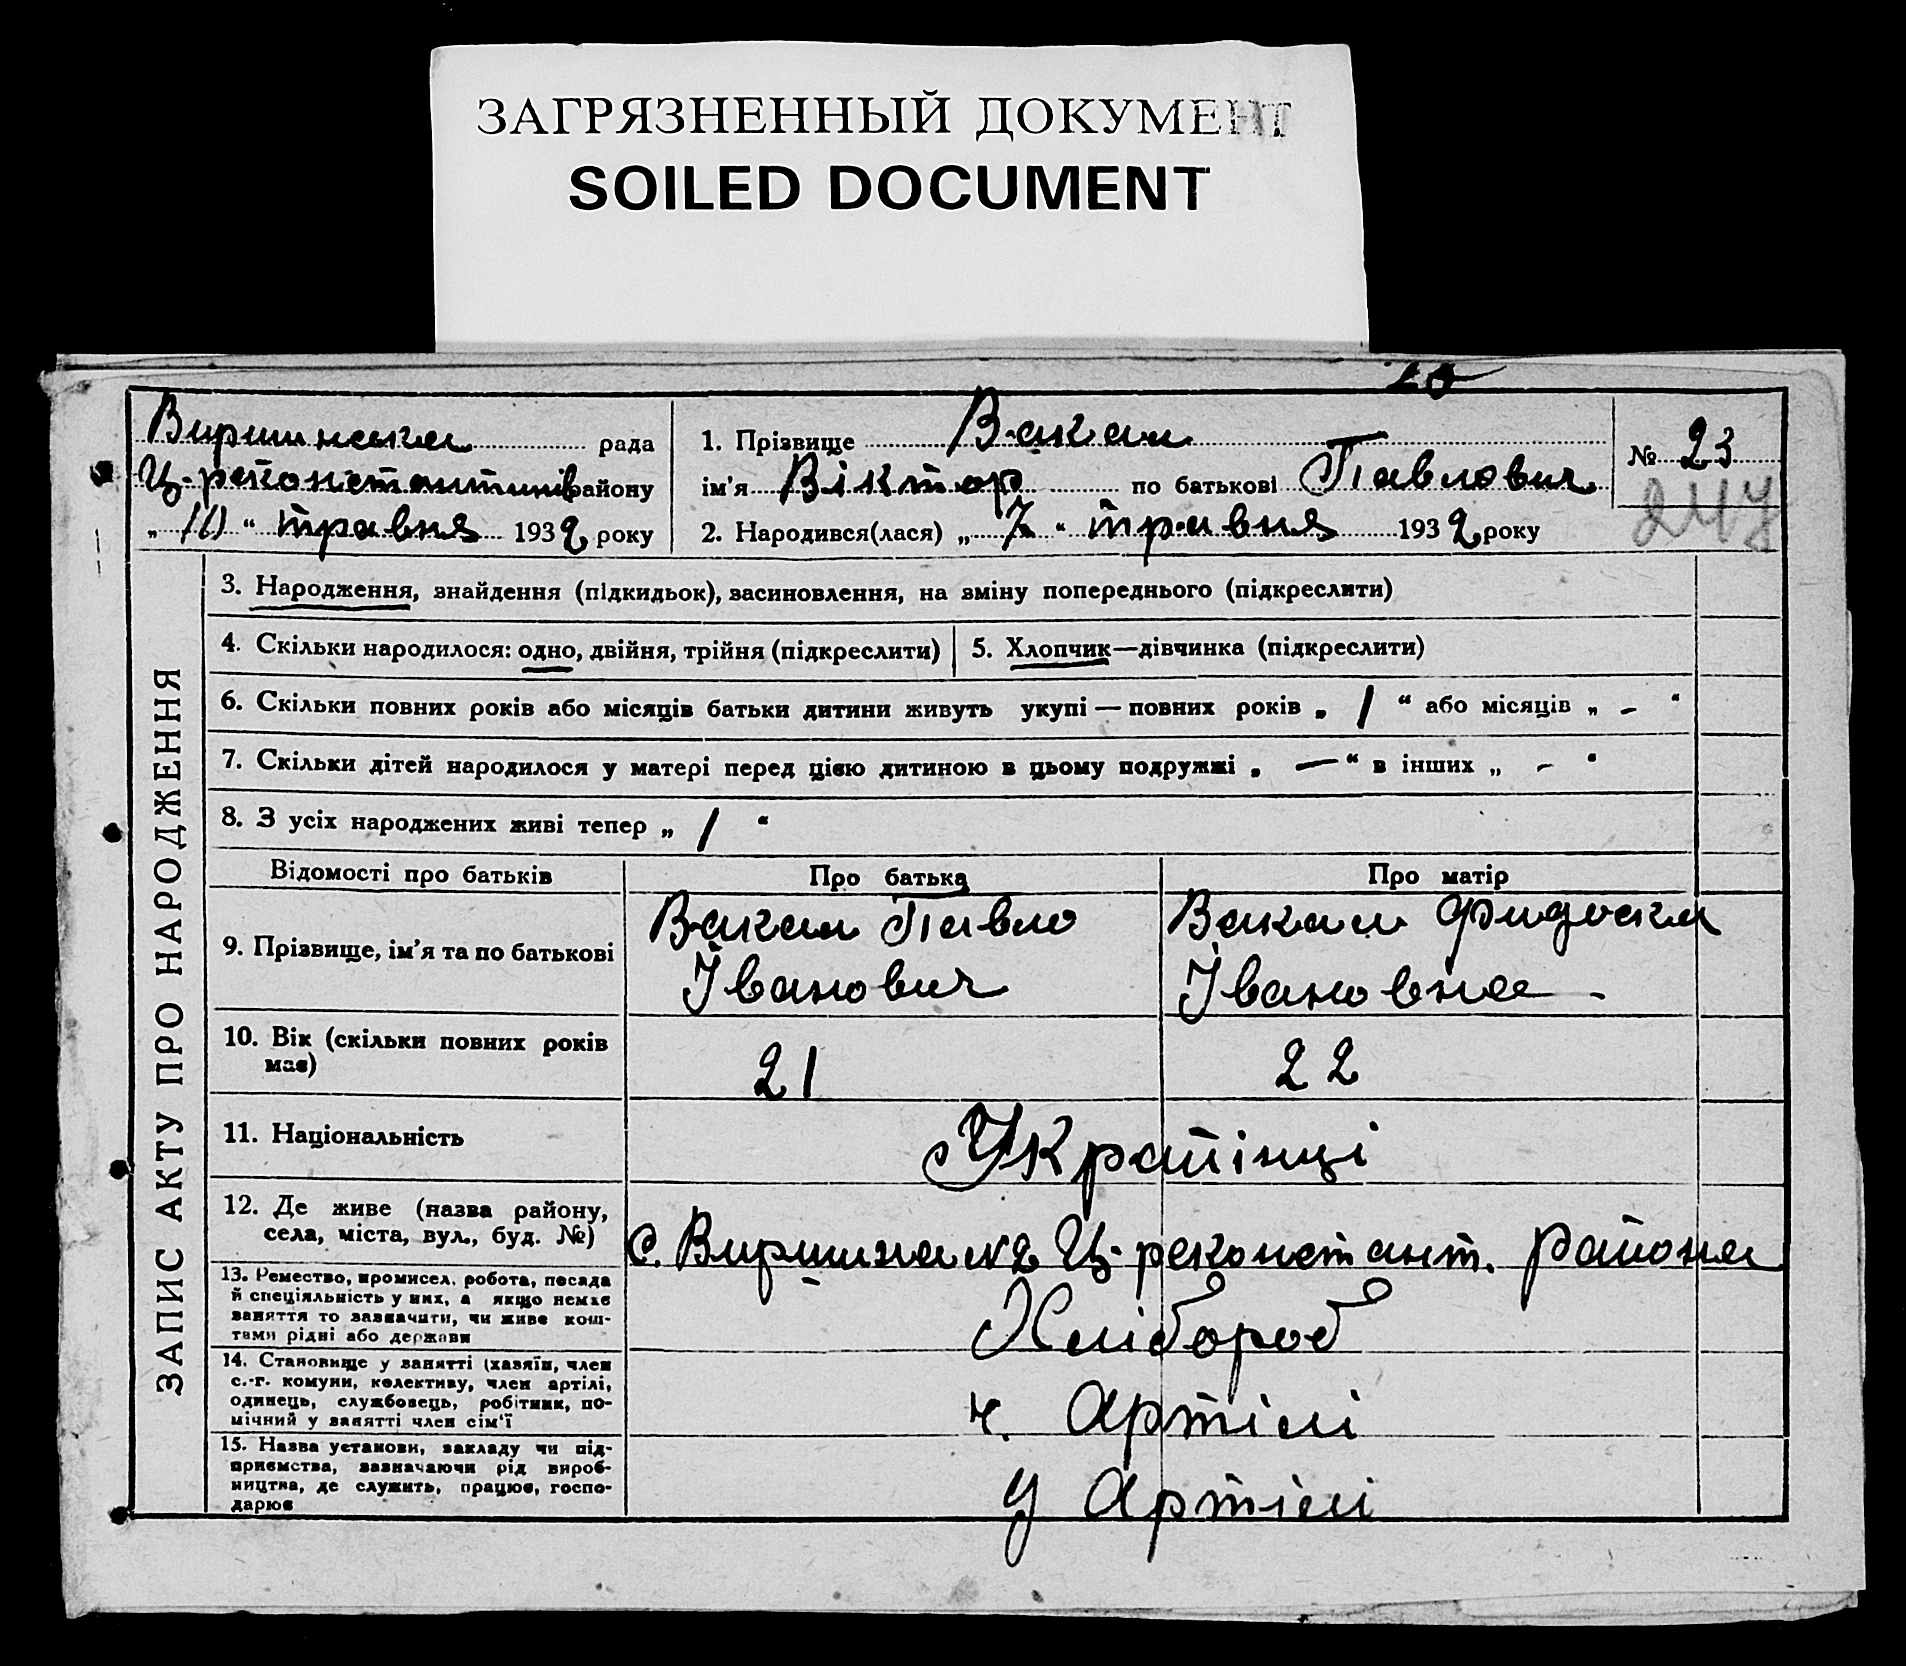 ЗАГРЯЗНЕННЫЙ ДОКУМЕНТ
SOILED DOCUMENT
20
Виршинська рада
району
„ 10 “ травня 1932 року
1. Прізвище Вакал
ім'я Віктор по батькові Павлович
2. Народився(лася) „ 7 “ травня 1932 року
№ 23
247
ЗАПИС АКТУ ПРО НАРОДЖЕННЯ
3. Народження, знайдення (підкидьок), засиновлення, на зміну попереднього (підкреслити)
4. Скільки народилося: одно, двійня, трійня (підкреслити)
5. Хлопчик—дівчинка (підкреслити)
6. Скільки повних років або місяців батьки дитини живуть укупі — повних років „ 1 “ або місяців „ – “
7. Скільки дітей народилося у матері перед цією дитиною в цьому подружжі „ — “ в інших „ – “
8. З усіх народжених живі тепер „ 1 “
Відомості про батьків
Про батька
Про матір
9. Прізвище, ім'я та по батькові
Вакал Павло
Іванович
Вакал
Івановна
10. Вік (скільки повних років
має)
21
22
11. Національність
Україінці
12. Де живе (назва району,
села, міста, вул., буд. №)
с. Виршина №2 Ц-реконстант. района
13. Ремество, промисел, робота, посада
й спеціяльність у них, а якщо немає
заняття то зазначити, чи живе кош-
тами рідні або держави
Хлібороб
14. Становище у занятті (хазяїн, член
с.-г. комуни, колективу, член артілі,
одинець, службовець, робітник, по-
мічний у занятті член сім'ї
ч. Артілі
15. Назва установи, закладу чи під-
приємства, зазначаючи рід вироб-
ництва, де служить, працює, госпо-
дарює
У Артілі